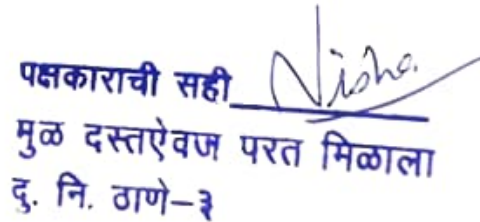 पक्षकाराची सही Nisha
मुळ दस्तऐवज परत मिळाला
दु. नि. ठाणे-३